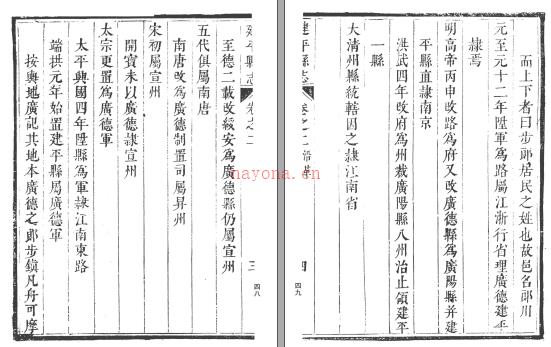 建平縣志 卷之二 三
四八
至德二載改綏安為廣德縣仍屬宣州
五代俱屬南唐
南唐改為廣德制置司屬昇州
宋初屬宣州
開寶末以廣德隸宣州
太宗更置為廣德軍
太平興國四年陞縣為軍隸江南東路
端拱元年始置建平縣屬廣德軍
按輿地廣記其地本廣德之郎步鎮凡舟可摩
而上下者曰步郎居民之姓也故邑名郎川
元至元十二年陞軍為路屬江浙行省理廣德建平
隸焉
明高帝丙申改路為府又改廣德縣為廣陽縣并建
平縣直隸南京
洪武四年改府為州裁廣陽縣入州治止領建平
一縣
大清州縣統轄因之隸江南省
建平縣志 卷之二 四
四九
nayona.cn